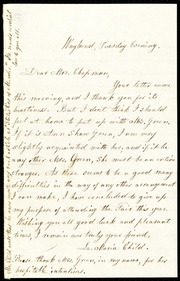 Wayland, Tuesday Evening.
Dear Mrs. Chapman,
Your letter came
this morning, and I thank you for its
heartiness. But I don't think I should
feel at home to put up with Mrs. Green,
If it is Aunt Shaw Green, I am very
slightly acquainted with her, and if it be
any other Mrs. Green, she must be an entire
stranger. As there seems to be a good many
difficulties in the way of any other arrangement
I can make, I have concluded to give up
my purpose of attending the Fair this year.
Wishing you all good luck and pleasant
times, I remain very truly your friend,
L. Maria Child.
Please thank Mrs. Green, in my name, for her
hospitable intentions.